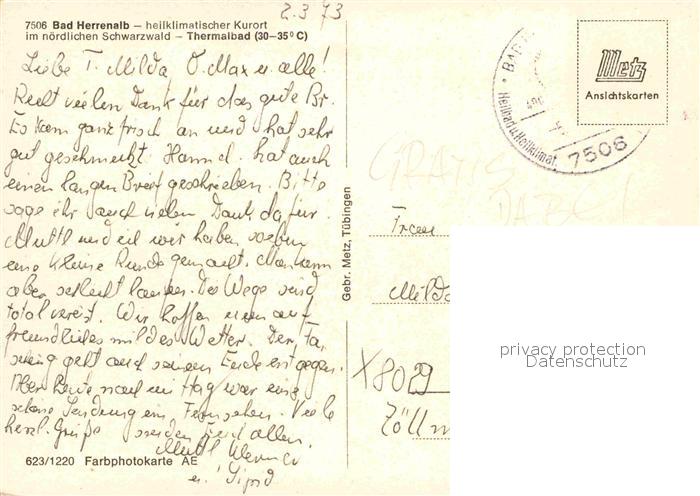 2.3.73
7506 Bad Herrenalb – heilklimatischer Kurort
im nördlichen Schwarzwald – Thermalbad (30–35°C)
Liebe T. Milda, O. Max u. alle!
Recht vielen Dank für das gute Br.
Es kam ganz frisch an und hat sehr
gut geschmeckt. Hannel. hat auch
einen langen Brief geschrieben. Bitte
sage ihr auch vielen Dank dafür.
Mutti und wir haben soeben
eine kleine Runde gemacht. Man kann
aber schlecht laufen. Die Wege sind
total vereist. Wir hoffen nun auf
freundliches mildes Wetter. Der Fa-
sching geht auch seinem Ende entgegen.
heute nach Mittag war eine
schöne Sendung im Fernsehen. Viele
herzl. Grüße senden Euch allen
Mutti Werner
u.
623/1220 Farbphotokarte AE
Gebr. Metz, Tübingen
BAD
Heilbad u. Heilklimat.
7506
Metz
Ansichtskarten
GRATIS
DABEI
Frau
Milda
X8029
Zöllm
privacy protection
Datenschutz